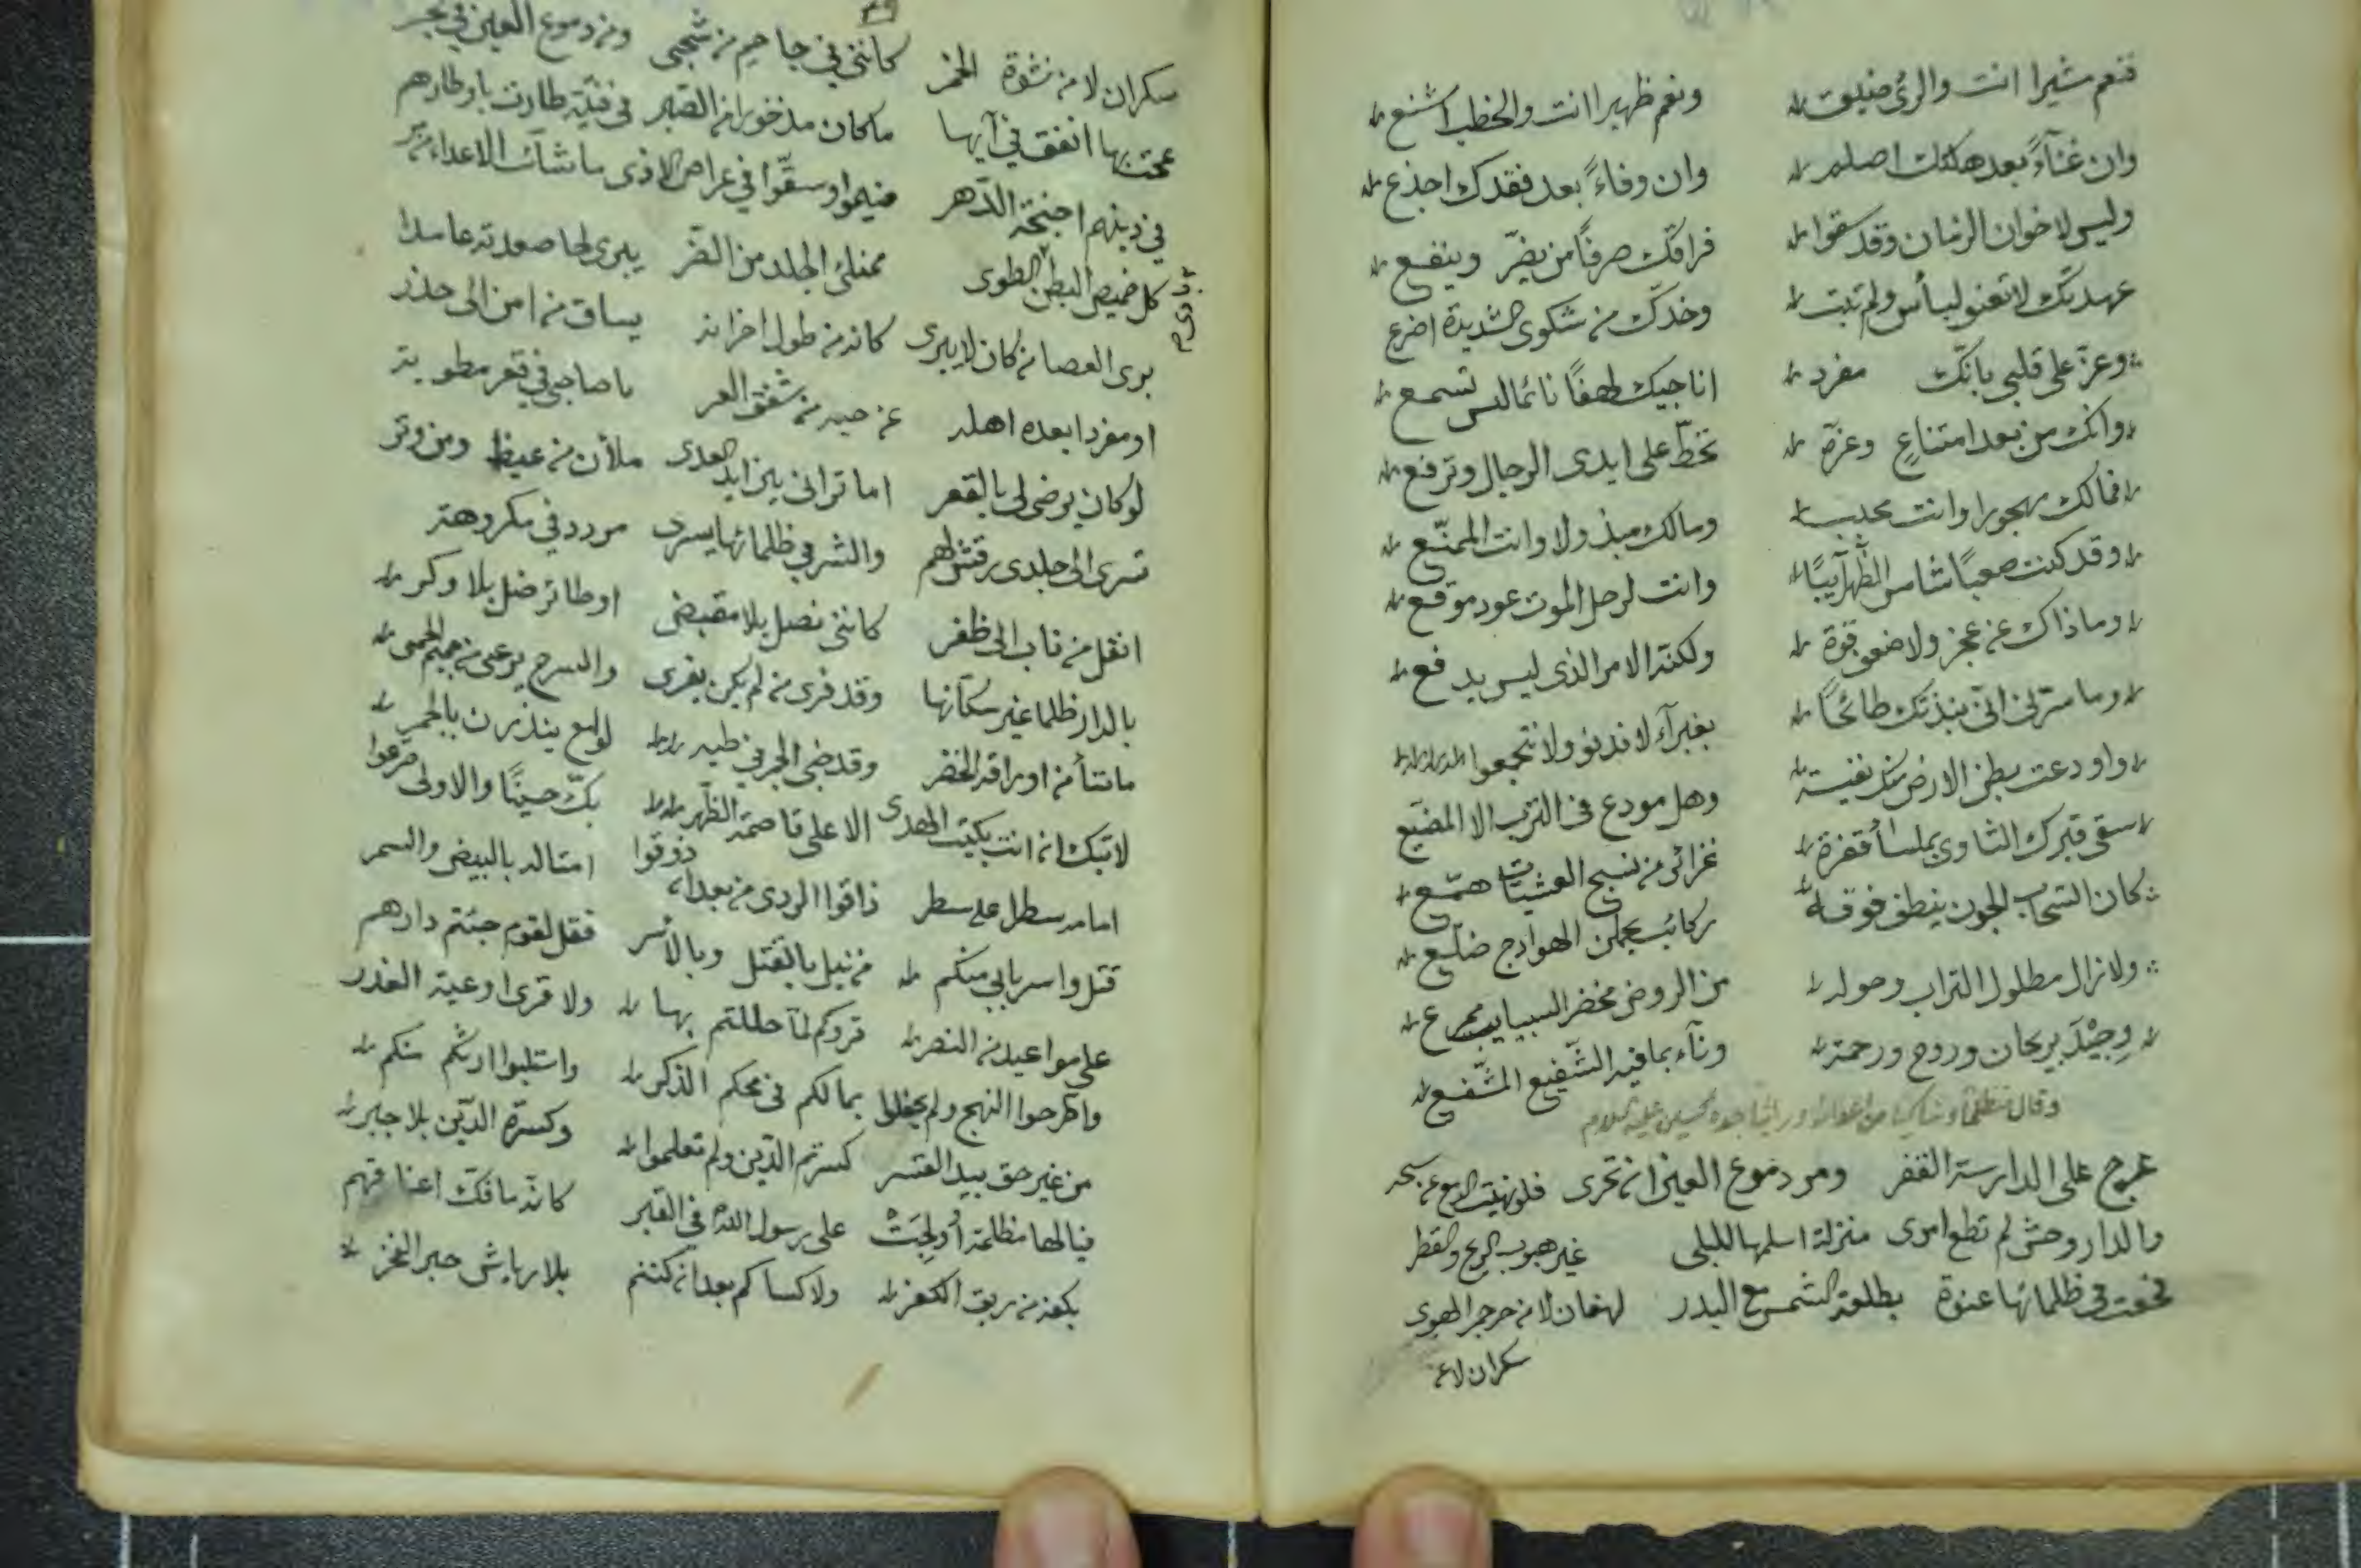 فنعم مشيرا انت والرئ ضيق ونعم ظهيرا انت والخطب اشنع
وان غنآءً بعد هلكك اصلم وان وفاءً بعد فقدك اجذع
وليس لاخوان الزمان وقد سقوا فراقك صرفًا من يضرّ وينفع
عهدتك لا تعنو لبأس ولم تبت وخدّك من شكوى الشديدة اضرع
وعزّ على قلبي بانّك مفرد اناجيك لهفًا نائما ليس تسمع
وانك من بعد امتناع وعزّة تحطّ على ايدى الرجال وترفع
فمالك مهجورا وانت محبب ومالك مبذولا وانت الممنّع
وقد كنت صعبًا شامس الظهر آبيًا وانت لرحل الموت عود موقع
وما ذاك عن عجز ولا ضعف قوة ولكنّه الامر الذى ليس يدفع
وما سرّنى انّى نبذتك طائحًا بغبرآء لا تدنو ولا تتجمع
واودعت بطن الارض منك نفيسة وهل مودع فى الترب الا المضيّع
سقى قبرك الثاوى بملسآء قفرة غزائر من نسج العشيّات همّع
كان السّحاب الجون ينطف فوقه ركائب يحملن الهوادج ضلّع
ولا زال مطلول التراب وحوله من الروض مخضر السبايب ممرع
وجيْدَ بريحان وروح ورحمة وناء بما فيه الشّفيع المشّفع
وقال متظلمًا وشاكيا من اعدائه وراثيا جده الحسين عليه السلام
عرج على الدارسة القفر ومر دموع العين ان تجرى فلو نهيت الدمع عن سحه
والدار وحش لم تطع امرى منزلة اسلمها للبلى غير هبوب الريح والقطر
فجعت فى ظلمائها عنوة بطلعة الشمس مع البدر لهفان لا من حر جمر الهوى
سكران لا عن
سكران لا من نشوة الخمر كاننى فى جاحم من شجى ومن دموع العين فى بحر
عجت بها انفق فى آيها ما كان مذخورا من الصّبر فى فتية طارت باوطارهم
فى ذيلهم اجنحة الدّهر ضيموا وسقّوا فى عراص الاذى ما شآءت الاعداء من مر
كل خميص البطن الطوى ممتلئ الجلد من الضّر يبرى لحا صعدته عامدا
برى العصا من كان لا يبرى كانه من طول احزانه يساق من امن الى حذر
او مفرد ابعده اهله عن حيه من شفق العر يا صاحبى فى قعر مطوية
لو كان يرضى لى بالقعر اما ترانى بين ايدى العدى ملأن من غيظ ومن وتر
تسرى الى جلدى رقش لهم والشر فى ظلمائها يسرى مردد فى مكروهة
انقل من ناب الى ظفر كاننى نصل بلا مقبض او طائر ضل بلا وكر
بالدار ظلما غير سكانها وقد قرى من لم يكن يقرى والسرح يرعى من حميم الحمى
ما شآء من اوراقه الخضر وقد خبى الجمر فى طيه لوامع ينذرن بالجمر
لا تبك ان انت بكيت الهدى الا على قاصمة الظّهر بكّ حسينًا والاولى صرعوا
امامه سطرا على سطر ذاقوا الردى من بعد ان ذوقوا امثاله بالبيض والسمر
قتل واسر بابى منكم من نيل بالقتل وبالأسر فقل لقوم جئتم دارهم
على مواعيد من النصر قروكم لمّا حللتم بها ولا قرى اوعية الغدر
واطّرحوا النهج ولم يحفلوا بما لكم فى محكم الذكر واستلبوا ارثكم منكم
من غير حق بيد القسر كسرتم الدّين ولم تعلموا وكسرة الدّين بلا جبر
فيالها مظلمة أُولجت على رسول اللّه فى القبر كانه ما فكّ اعناقهم
بكفه من ربق الكفر ولا كساكم بعد ان كنتم بلا رياش حبر الفخر